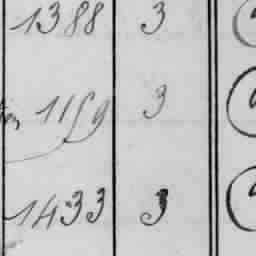 1388 3
1159 3
1433 3